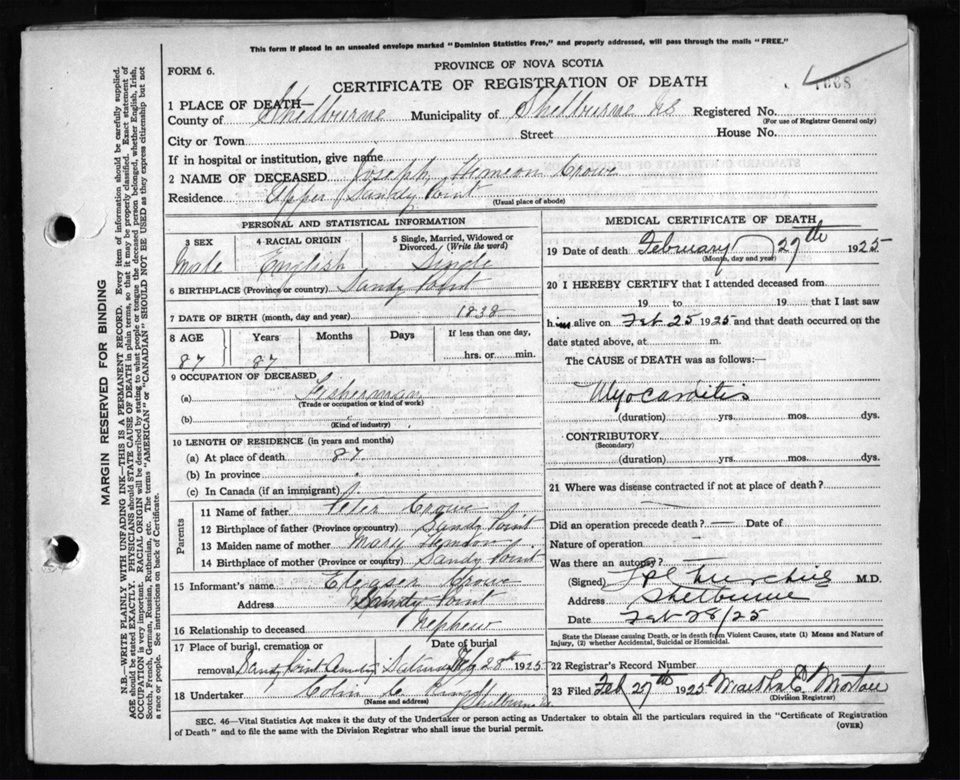 This form if placed in an unsealed envelope marked "Dominion Statistics Free," and properly addressed, will pass through the mails "FREE."
PROVINCE OF NOVA SCOTIA
FORM 6.
CERTIFICATE OF REGISTRATION OF DEATH
1 PLACE OF DEATH—
County of Shelburne Municipality of Shelburne Registered No.
(For use of Registrar General only)
City or Town Street House No.
If in hospital or institution, give name
2 NAME OF DECEASED Joseph Crowe
Residence Upper Sandy Point
(Usual place of abode)
PERSONAL AND STATISTICAL INFORMATION
3 SEX 4 RACIAL ORIGIN 5 Single, Married, Widowed or Divorced. (Write the word)
Male English Single
6 BIRTHPLACE (Province or country) Sandy Point
7 DATE OF BIRTH (month, day and year) 1838
8 AGE Years Months Days If less than one day,
87 87 hrs. or min.
9 OCCUPATION OF DECEASED
(a) Fisherman
(Trade or occupation or kind of work)
(b)
(Kind of industry)
10 LENGTH OF RESIDENCE (in years and months)
(a) At place of death 87
(b) In province
(c) In Canada (if an immigrant)
Parents
11 Name of father Peter Crowe
12 Birthplace of father (Province or country) Sandy Point
13 Maiden name of mother Mary
14 Birthplace of mother (Province or country) Sandy Point
15 Informant's name Crowe
Address Sandy Point
16 Relationship to deceased Nephew
17 Place of burial, cremation or removal Date of burial
Sandy Point 28th 1925
18 Undertaker Colin C.
(Name and address) Shelburne
MEDICAL CERTIFICATE OF DEATH
19 Date of death February 27th 1925
(Month, day and year)
20 I HEREBY CERTIFY that I attended deceased from
19 to 19 that I last saw
him alive on Feb 25 1925 and that death occurred on the
date stated above, at m.
The CAUSE of DEATH was as follows:—
Myocarditis
(duration) yrs. mos. dys.
CONTRIBUTORY
(Secondary)
(duration) yrs. mos. dys.
21 Where was disease contracted if not at place of death?
Did an operation precede death? — Date of
Nature of operation
Was there an autopsy?
(Signed) M.D.
Address Shelburne
Date Feb 28/25
State the Disease causing Death, or in death from Violent Causes, state (1) Means and Nature of
Injury, (2) whether Accidental, Suicidal or Homicidal.
22 Registrar's Record Number
23 Filed Feb 27th 1925 Martha E. Morton
(Division Registrar)
SEC. 46—Vital Statistics Act makes it the duty of the Undertaker or person acting as Undertaker to obtain all the particulars required in the "Certificate of Registration
of Death" and to file the same with the Division Registrar who shall issue the burial permit.
(OVER)
MARGIN RESERVED FOR BINDING
N.B.—WRITE PLAINLY WITH UNFADING INK—THIS IS A PERMANENT RECORD. Every item of information should be carefully supplied.
AGE should be stated EXACTLY. PHYSICIANS should STATE CAUSE OF DEATH in plain terms, so that it may be properly classified. Exact statement of
OCCUPATION is very important. RACIAL ORIGIN will be described by stating to what people or tongue the deceased person belonged, whether English, Irish,
Scotch, French, German, Russian, Ruthenian, etc. The terms "AMERICAN" or "CANADIAN" SHOULD NOT BE USED as they express citizenship but not
a race or people. See instructions on back of Certificate.